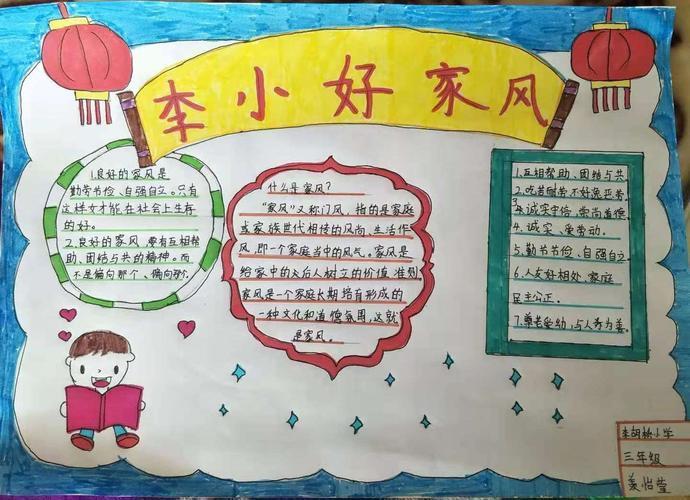 李小好家风
1.良好的家风是
勤劳节俭、自强自立。只有
这样女才能在社会上生存
的好。
2.良好的家风,要有互相帮
助、团结与共的精神。而
不是偏向那个、偏向那个。
什么是家风?
"家风"又称门风,指的是家庭
或家族世代相传的风尚、生活作
风,即一个家庭当中的风气。家风是
给家中的后人树立的价值准则
家风是一个家庭长期培育形成的
一种文化和道德氛围,这就
是家风。
1.互相帮助、团结与共
2.吃苦耐劳不好逸恶劳
3.诚实守信、崇尚道德
4.诚实、爱劳动。
5.勤劳节俭、自强自立。
6.人女好相处、家庭
民主公正。
7.尊老爱幼,与人为善。
李胡林小学
三年级
姜怡莹